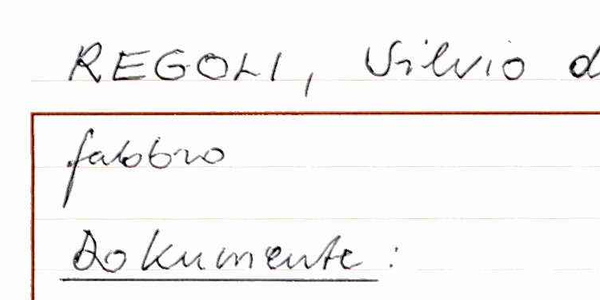 REGOLI, Silvio d
fabbro
Dokumente: